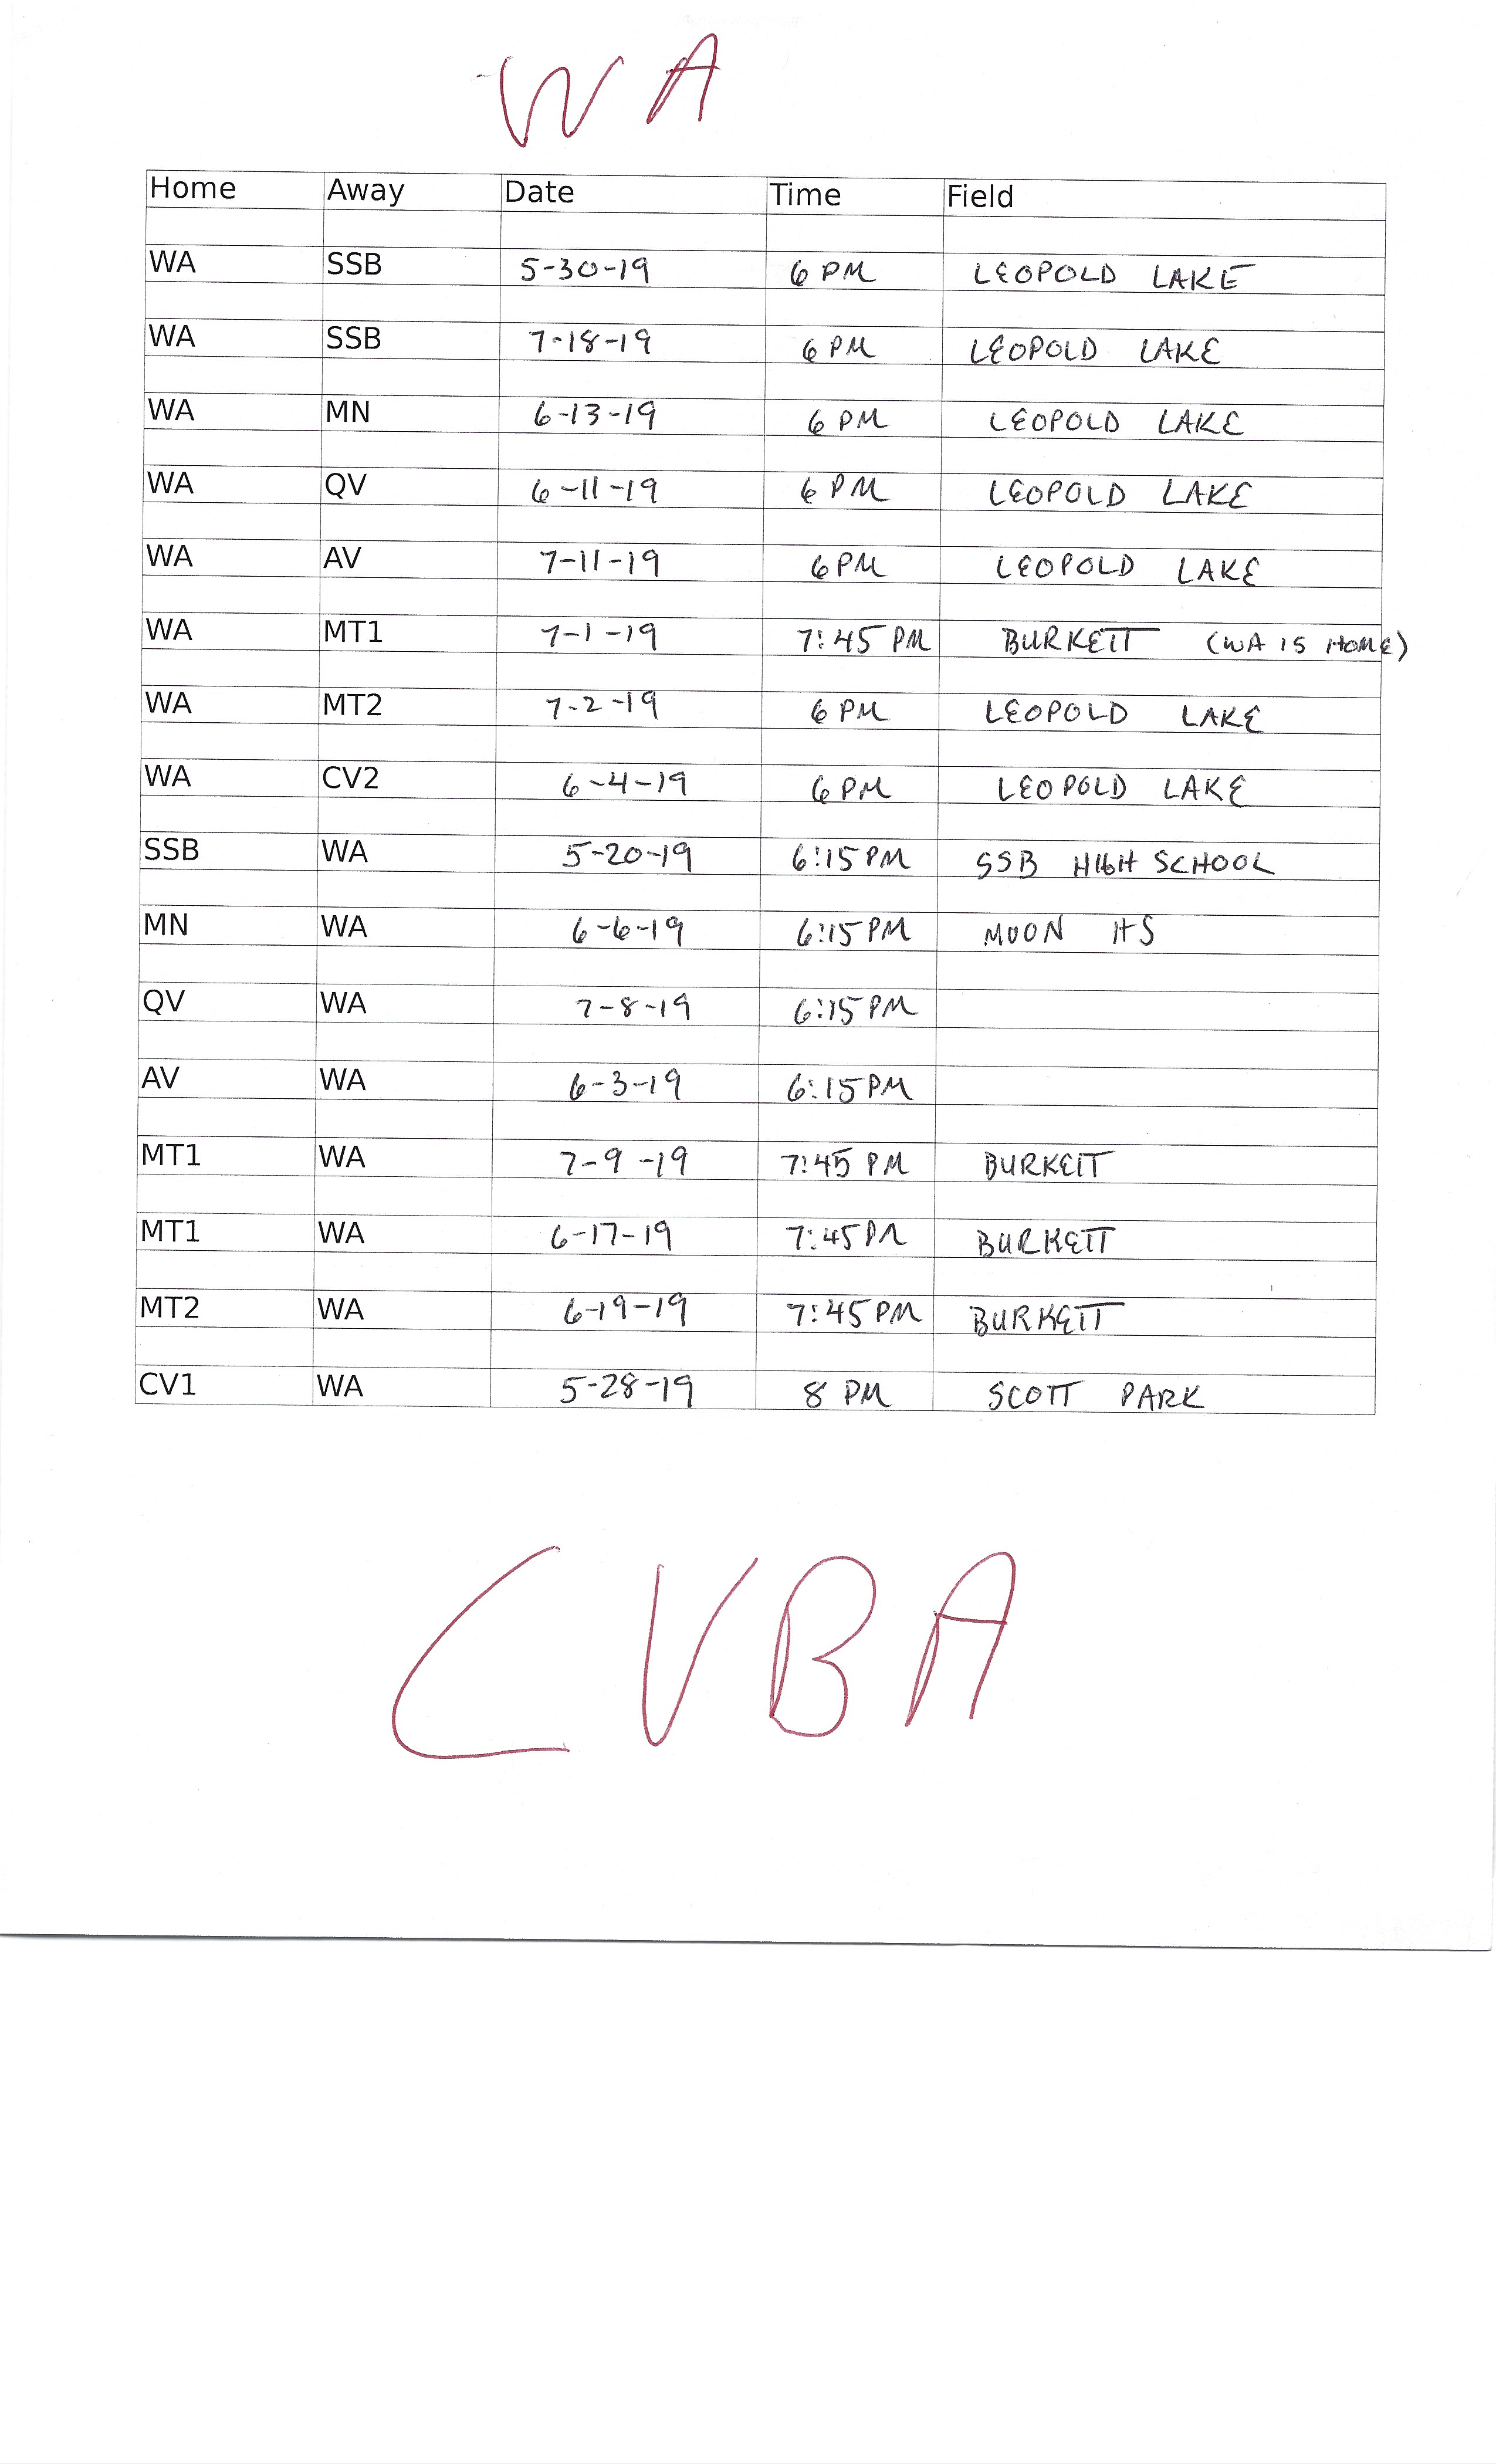 WA
Home Away Date Time Field
WA SSB 5-30-19 6 PM LEOPOLD LAKE
WA SSB 7-18-19 6 PM LEOPOLD LAKE
WA MN 6-13-19 6 PM LEOPOLD LAKE
WA QV 6-11-19 6 PM LEOPOLD LAKE
WA AV 7-11-19 6 PM LEOPOLD LAKE
WA MT1 7-1-19 7:45 PM BURKETT (WA IS HOME)
WA MT2 7-2-19 6 PM LEOPOLD LAKE
WA CV2 6-4-19 6 PM LEOPOLD LAKE
SSB WA 5-20-19 6:15 PM SSB HIGH SCHOOL
MN WA 6-6-19 6:15 PM MOON HS
QV WA 7-8-19 6:15 PM
AV WA 6-3-19 6:15 PM
MT1 WA 7-9-19 7:45 PM BURKETT
MT1 WA 6-17-19 7:45 PM BURKETT
MT2 WA 6-19-19 7:45 PM BURKETT
CV1 WA 5-28-19 8 PM SCOTT PARK
CVBA